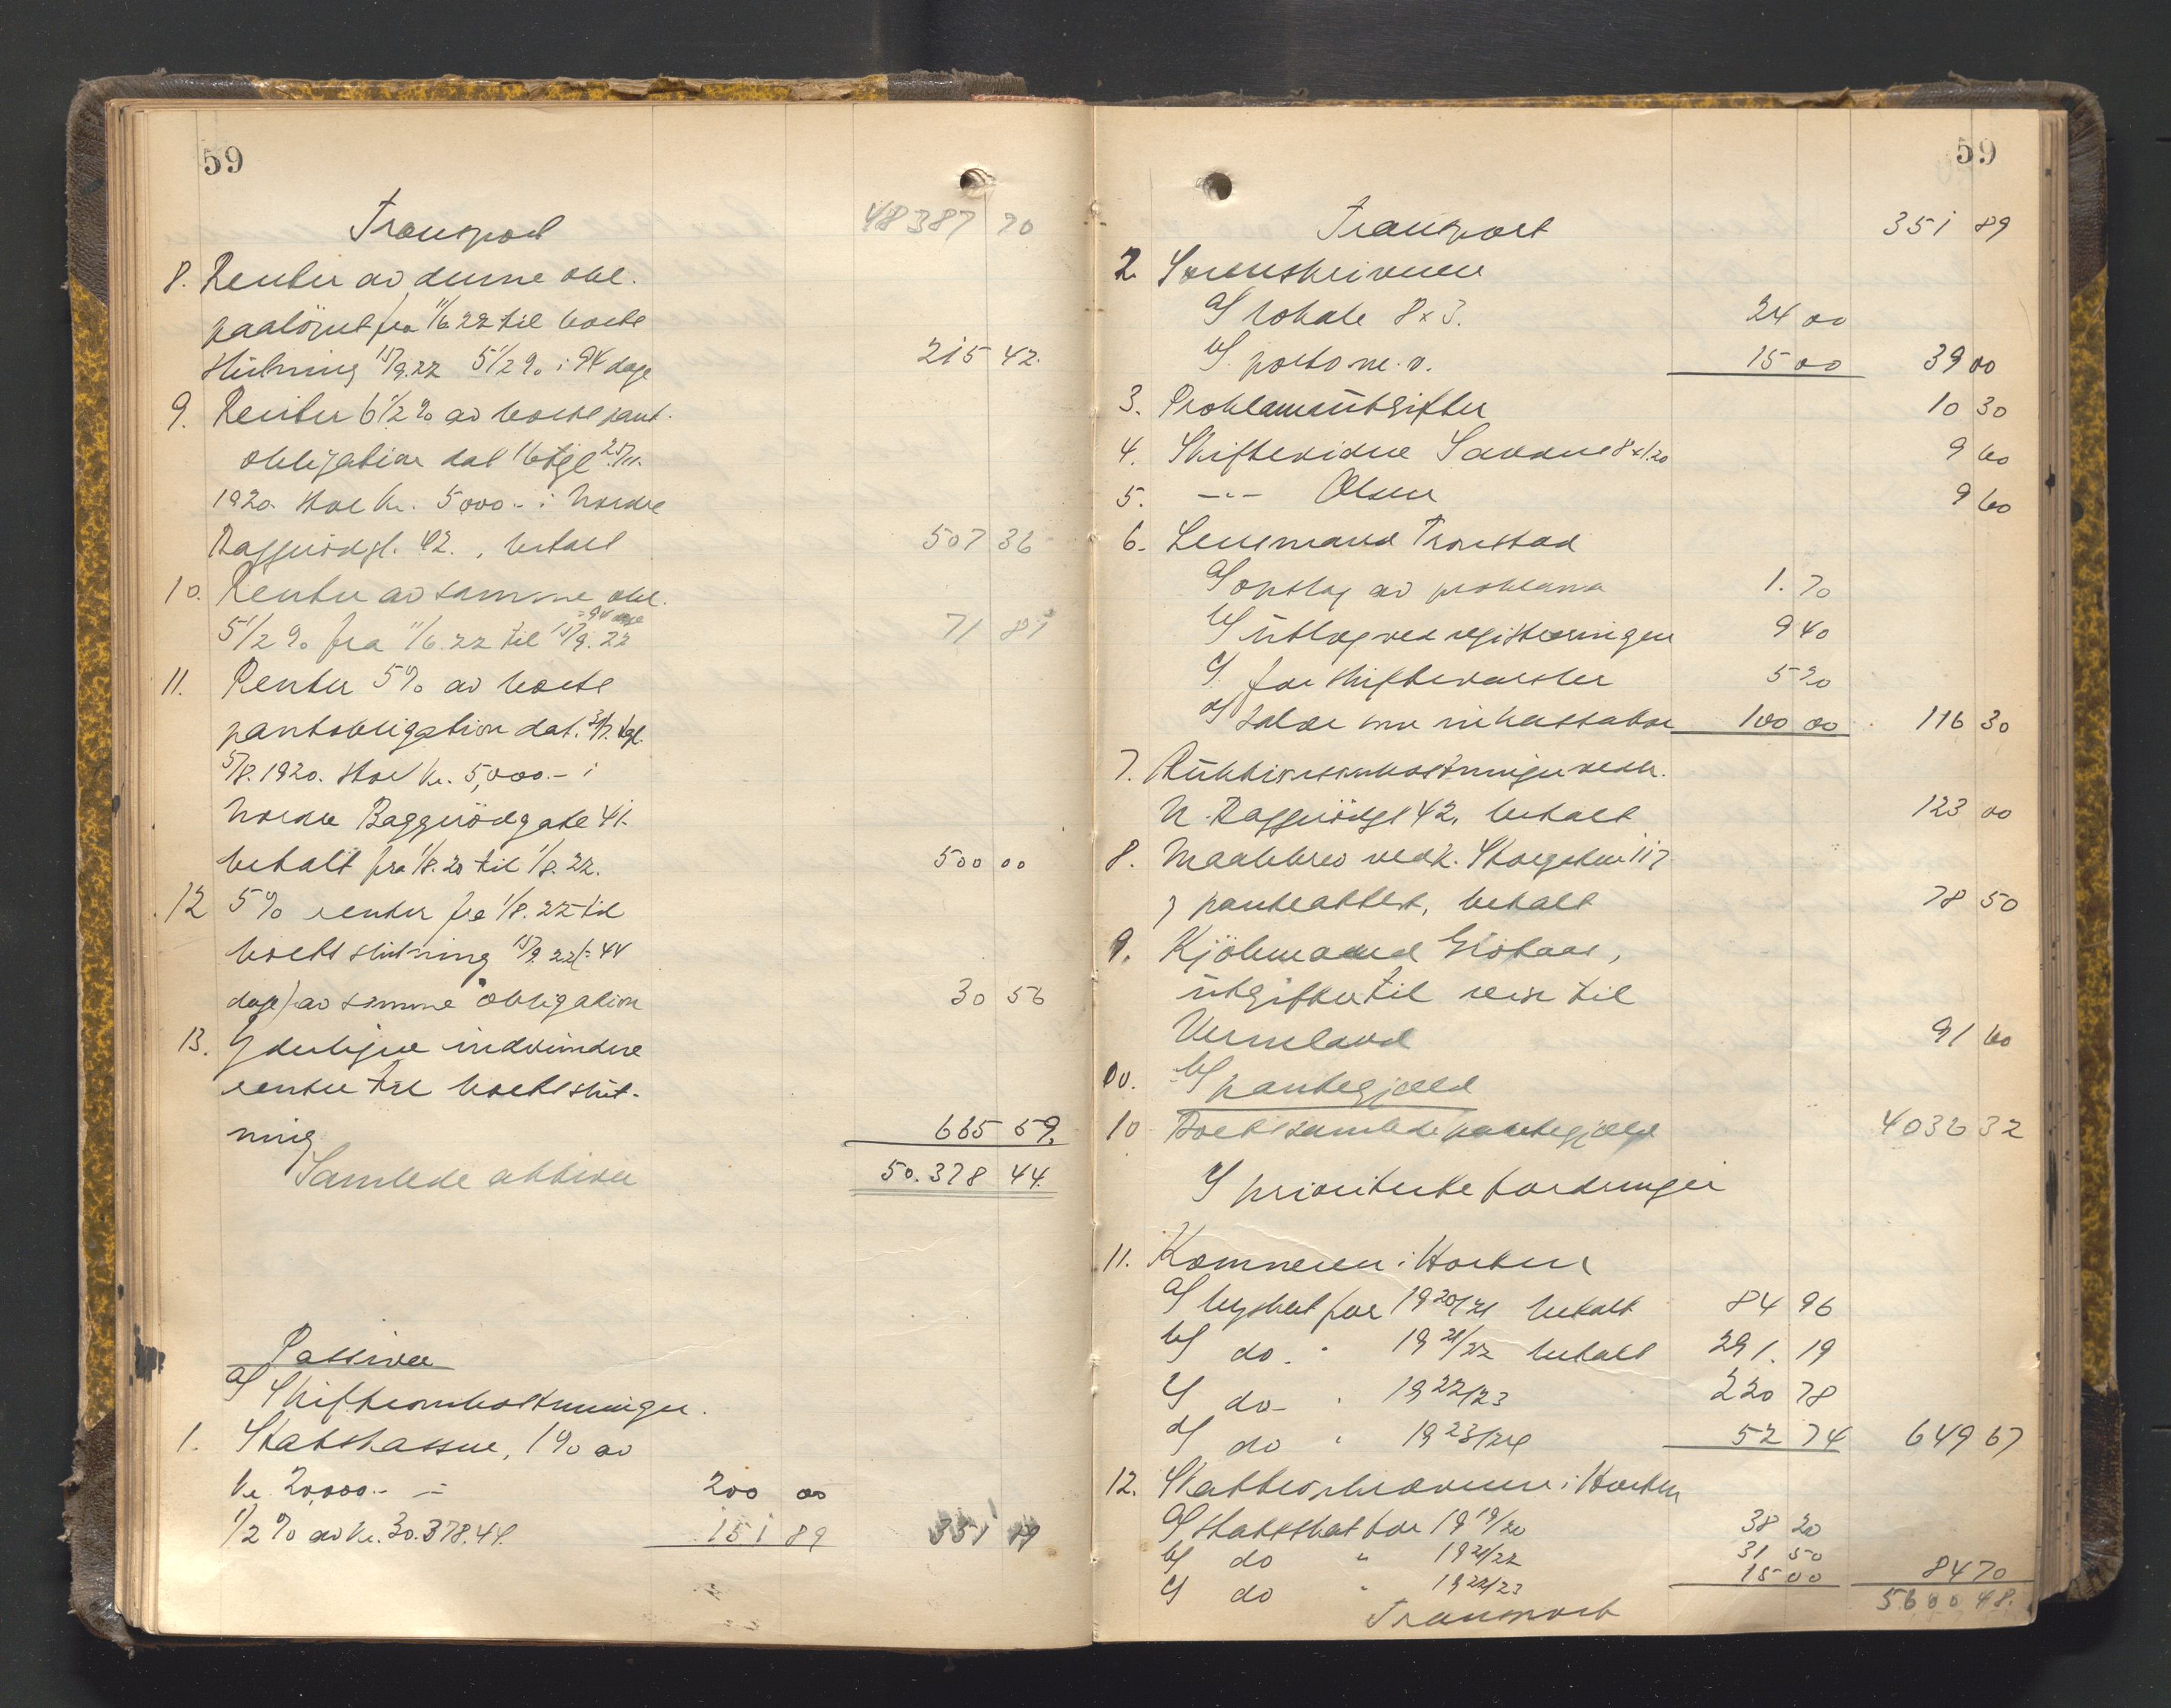 59
Transport 48387 70
8. Renter av denne obl.
paaløpet fra 11/6 22 til boets
slutning 15/9.22 5 1/2 % i 94 dage 215 42.
9. Renter 6 1/2 % av boets pant.
obligation dat 1/6 tgl 25/11.
1920. stor kr. 5000.- i Nordre
Baggerødgt. 42., betalt 507 36
10. Renter av samme obl.
5 1/2 % fra 11/6.22 til 15/9.22 = 94 dage 71 81
11. Renter 5% av boets
pantobligation dat. 31/7. tgl.
5/8. 1920. stor kr. 5,000.- i
Nordre Baggerødgate 41.
betalt fra 1/8.20 til 1/8.22. 500 00
12 5% renter fra 1/8.22 til
boets slutning 15/9 22 (= 44
dage) av samme obligation 30 56
13. Yderligere indvundne
renter til boets slut-
ning 665 59.
Samlede aktiva 50.378 44.
Passiva
a) Skifteomkostninger.
1. Statskassen, 1% av
kr. 20,000.- = 200 00
1/2 % av kr. 30.378.44. 151 89 351 89
59
Transport 351 89
2. Sorenskriveren
a) lokale 8 x 3. 24 00
b) porto m. v. 15 00 39 00
3. Proklamautgifter 10 30
4. Skiftevidne 8 x 1.20 9 60
5. -"- Olsen 9 60
6. Lensmand Tronstad
a) opslag av proklama 1.70
b) utlæg ved registreringen 9 40
c) for skiftevarsler 5 20
d) salær som inkassator 100 00 116 30
7. Auktionsomkostninger vedk.
N. Baggerødgt 42. betalt 123 00
8. Maalebrev vedk. Storgaten 117
& panteattest, betalt 78 50
9. Kjøbmand
utgifter til reise til
Vermland 91 60
b) pantegjæld
10 Boets samlede pantegjæld 4036 32
c) prioriterte fordringer
11. Kemneren i Horten
a) byskat for 1920/21 betalt 84 96
b) do. " 1921/22 betalt 291.19
c) do " 1922/23 220 78
d) do " 1923/24 52 74 649 67
12. Skatteopkræveren i Horten
a) statsskat for 1919/20 38 20
b) do " 1921/22 31 50
c) do " 1922/23 15 00 84 70
Transport 5600 48.